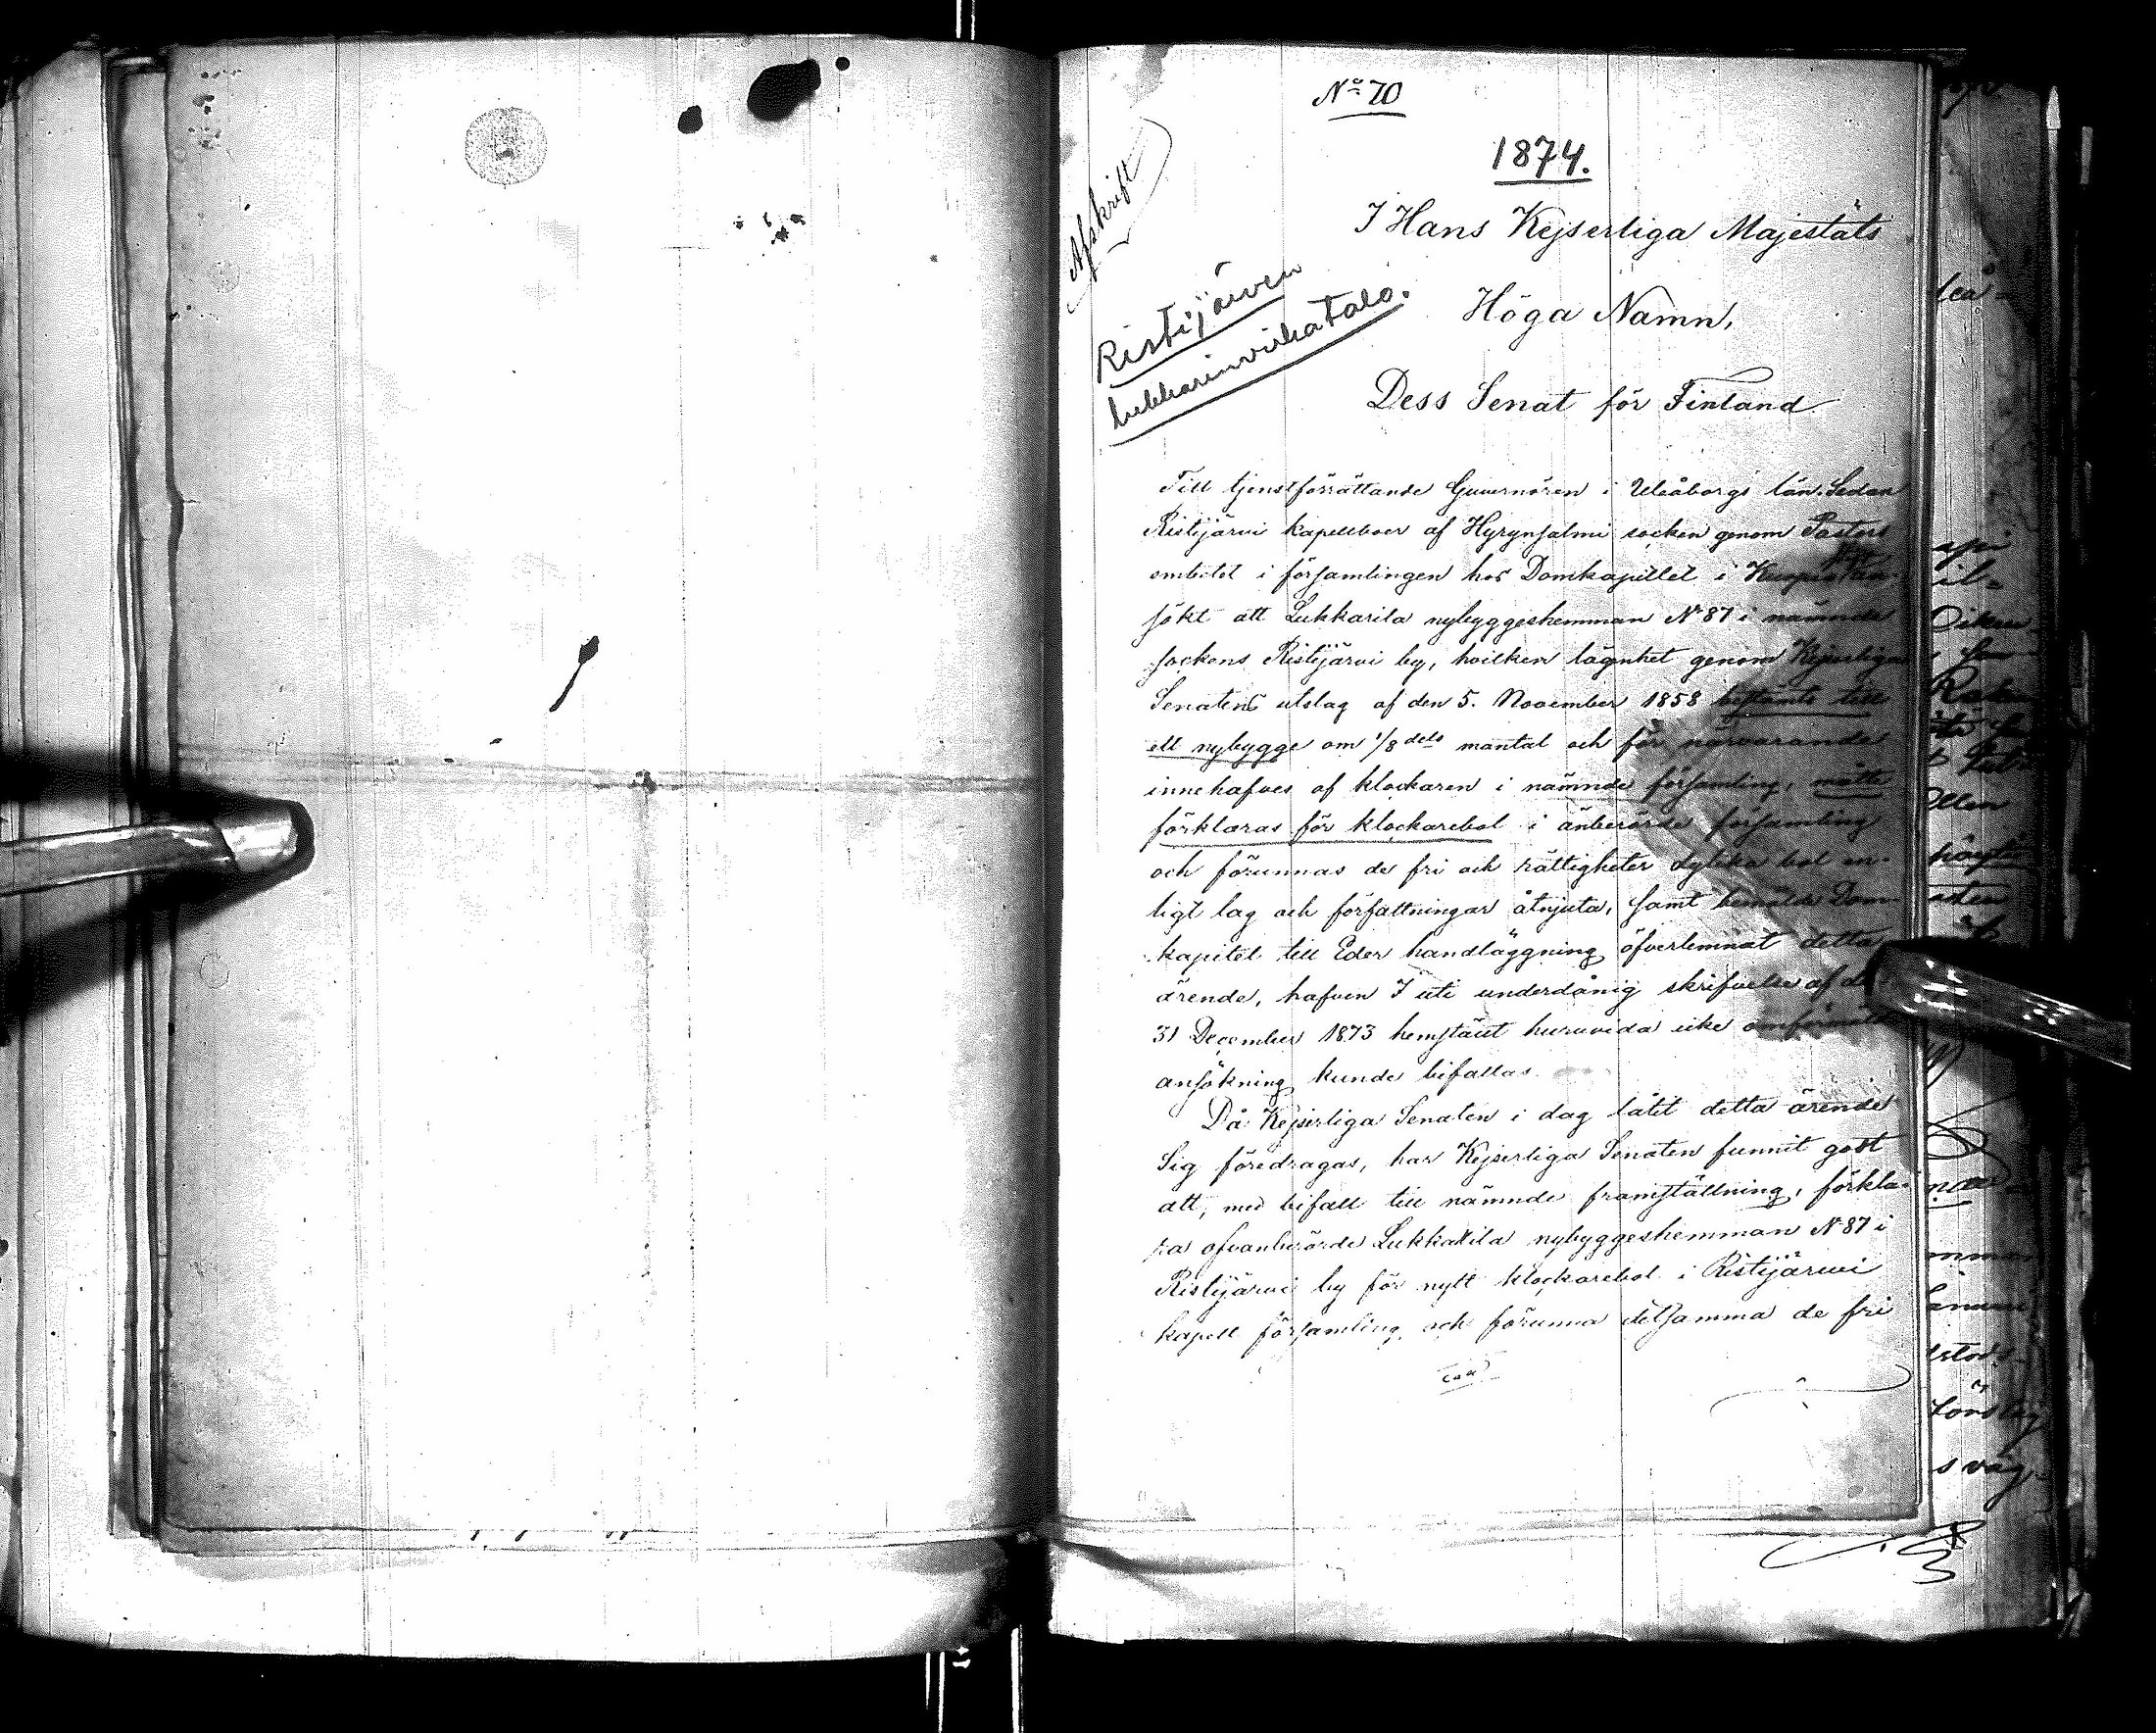 No 70
1874.
Afskrift
Ristijärven
lukkarinvirkatalo.
I Hans Kejserliga Majestäts
Höga Namn,
Dess Senat för Finland
Till tjenstförrättande Guvernören i Uleåborgs län. Sedan
Ristijärvi kapellboer af Hyrynsalmi socken genom Pastors
embetet i församlingen hos Domkapitlet i Kuopio an-
sökt att Lukkarila nybyggeshemman No 87 i nämnde
sockens Ristijärvi by, hvilken lägenhet genom Kejserliga
Senatens utslag af den 5. November 1858 bestämts till
ett nybygge om 1/8 dels mantal och för närvarande
innehafves af klockaren i nämnde församling, måtte
förklaras för klockarebol i änberörde församling
och förunnas de fri och rättigheter dylika bol en-
ligt lag och författningar åtnjuta, samt bemälde Dom-
kapitel till Eder handläggning öfverlemnat detta
ärende, hafven I uti underdånig skrifvelse af den
31 December 1873 hemstält huruvida icke omförmälte
ansökning kunde bifallas.
Då Kejserliga Senaten i dag låtit detta ärende
Sig föredragas, har Kejserliga Senaten funnit godt
att, med bifall till nämnde framställning, förkla-
ra ofvanberörde Lukkarila nybyggeshemman No 87 i
Ristijärvi by för nytt klockarebol i Ristijärvi
kapell församling, och förunna detsamma de fri
och